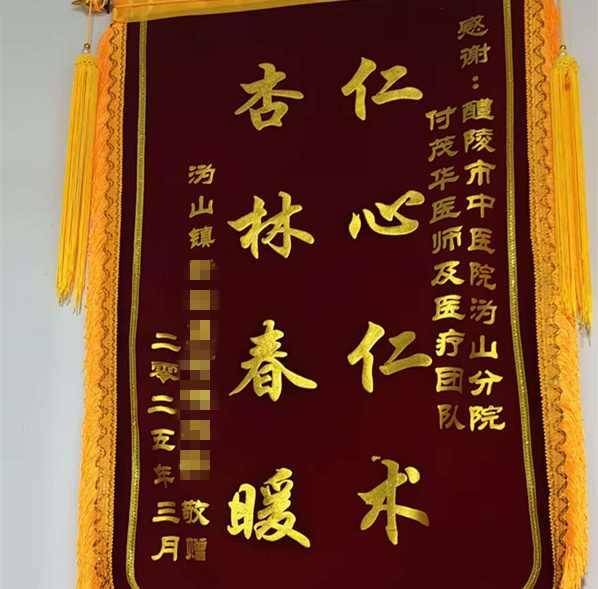 感谢：醴陵市中医院沩山分院
付茂华医师及医疗团队
仁心仁术
杏林春暖
沩山镇
敬赠
二零二五年三月